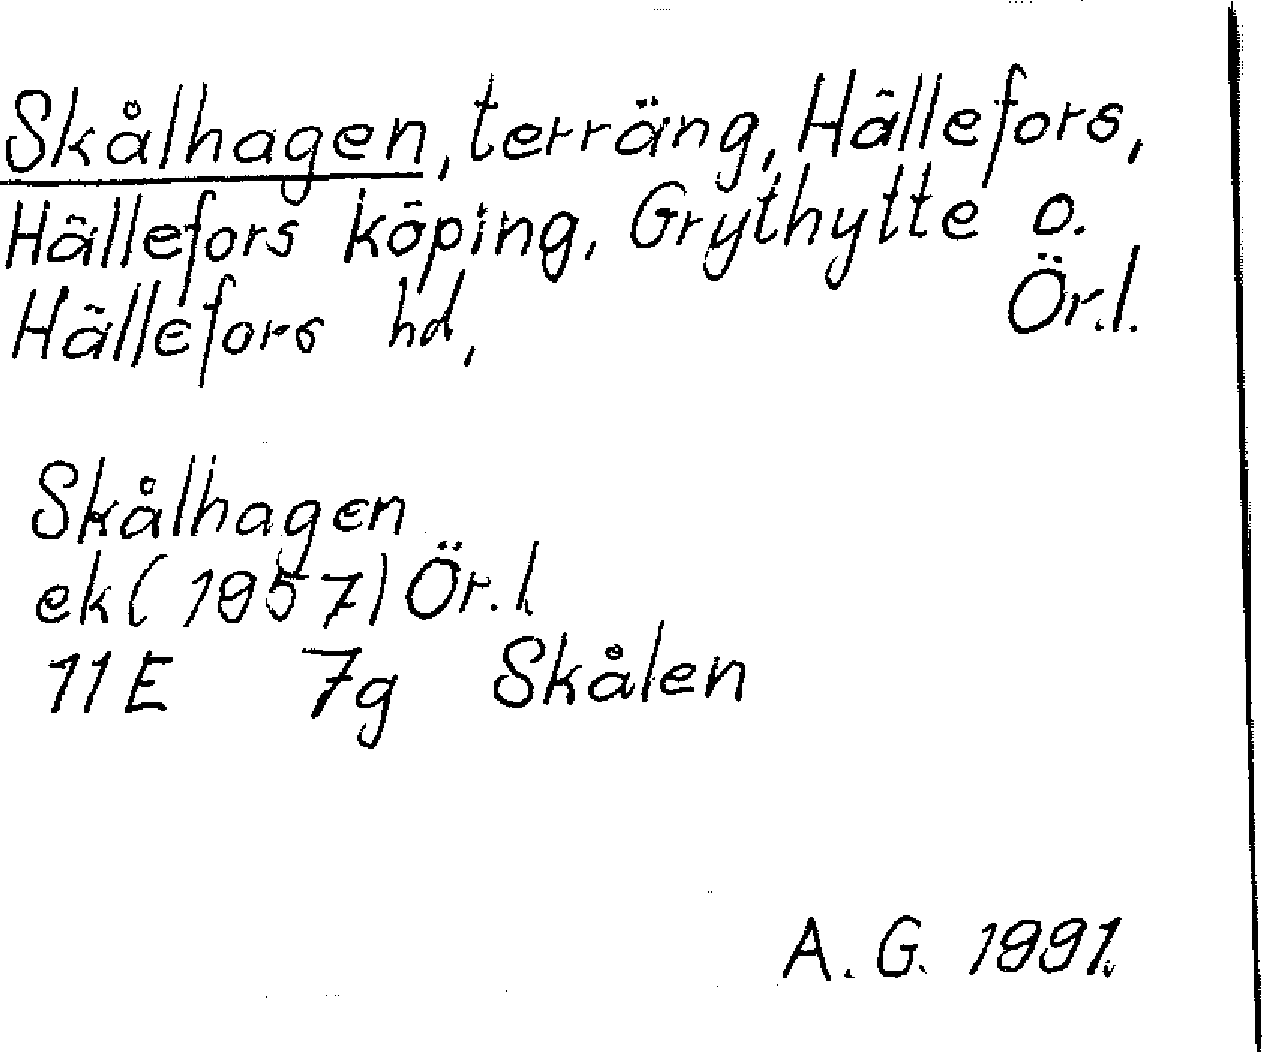 Skålhagen, terräng, Hällefors,
Hällefors köping, Grythytte o.
Hällefors hd, Ör.l.
Skålhagen
ek (1957) Ör.l
11E 7g Skålen
A.G. 1991.